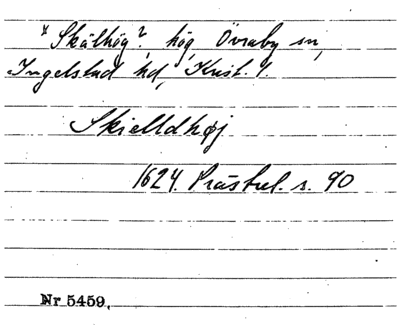 *Skälhög? hög, Övraby sn,
Ingelstad hd, Krist. l.
Skielldhøj
1624. Prästrel. s. 90
Nr 5459.